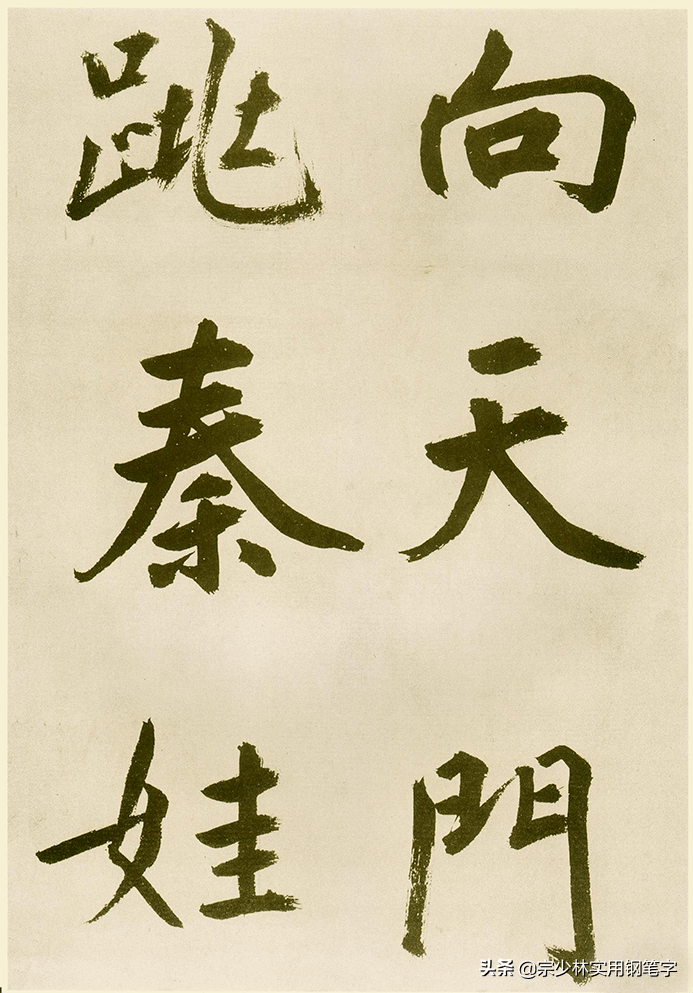 向天門
跳秦娃
头条 @宗少林实用钢笔字